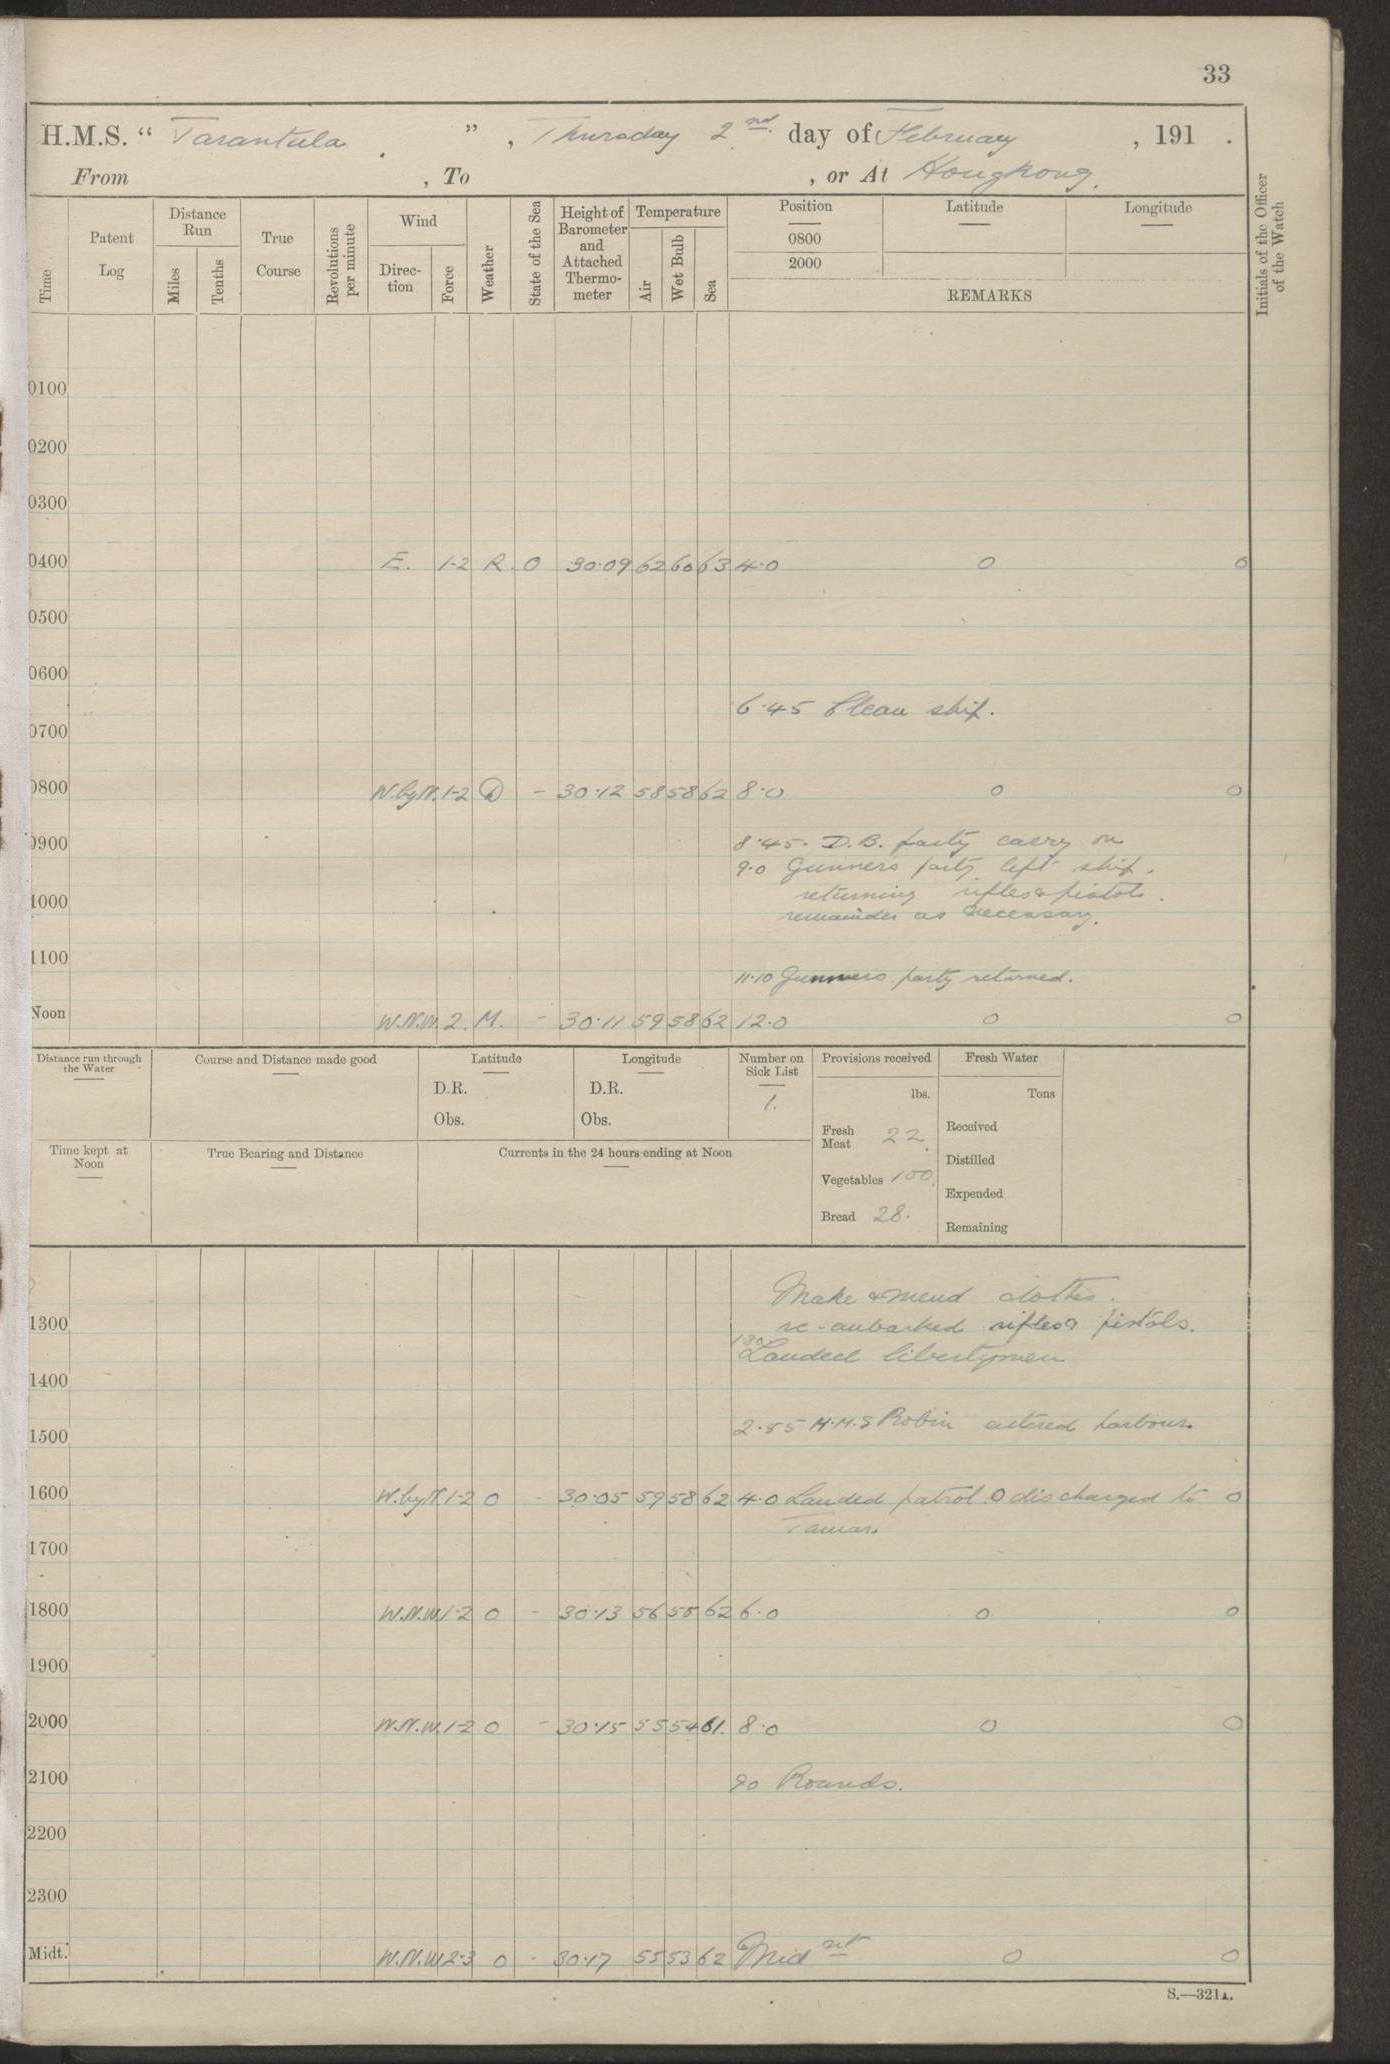 33
H.M.S. “ Tarantula. ” , Thursday 2nd. day of February , 191 .
From , To , or At Hongkong.
Time
Patent Log
Distance Run
Miles
Tenths
True Course
Revolutions per minute
Wind
Direc-tion
Force
Weather
State of the Sea
Height of Barometer and Attached Thermo-meter
Temperature
Air
Wet Bulb
Sea
Position
0800
2000
Latitude
Longitude
REMARKS
Initials of the Officer of the Watch
0100
0200
0300
0400 E. 1-2 R. 0 30·09 62 60 63 4·0 0 0
0500
0600
6·45 Clean ship.
0700
0800 N.byW. 1-2 - 30·12 58 58 62 8·0 0 0
8·45. D.B. party carry on
0900
9·0 Gunners party left ship.
returning rifles & pistols.
1000
remainder as necessary.
1100
11·10 Gunners party returned.
Noon W.N.W. 2. M. - 30·11 59 58 62 12·0 0 0
Distance run through the Water
Course and Distance made good
Latitude
D.R.
Obs.
Longitude
D.R.
Obs.
Number on Sick List
1.
Provisions received
lbs.
Fresh Meat 22.
Vegetables 100.
Bread 28.
Fresh Water
Tons
Received
Distilled
Expended
Remaining
Time kept at Noon
True Bearing and Distance
Currents in the 24 hours ending at Noon
Make & mend clothes.
1300
re-embarked rifles & pistols.
Landed libertymen
1400
2·55 H.M.S Robin entered harbour.
1500
1600 W.byN. 1-2 0 - 30·05 59 58 62 4·0 Landed patrol. 0 discharged to 0
Tamar.
1700
1800 W.N.W. 1-2 0 - 30·13 56 55 62 6·0 0 0
1900
2000 W.N.W. 1-2 0 - 30·15 55 54 61. 8·0 0 0
2100
90 Rounds.
2200
2300
Midt. W.N.W 2-3 0 - 30·17 55 53 62 Mid 0 0
S.—321A.